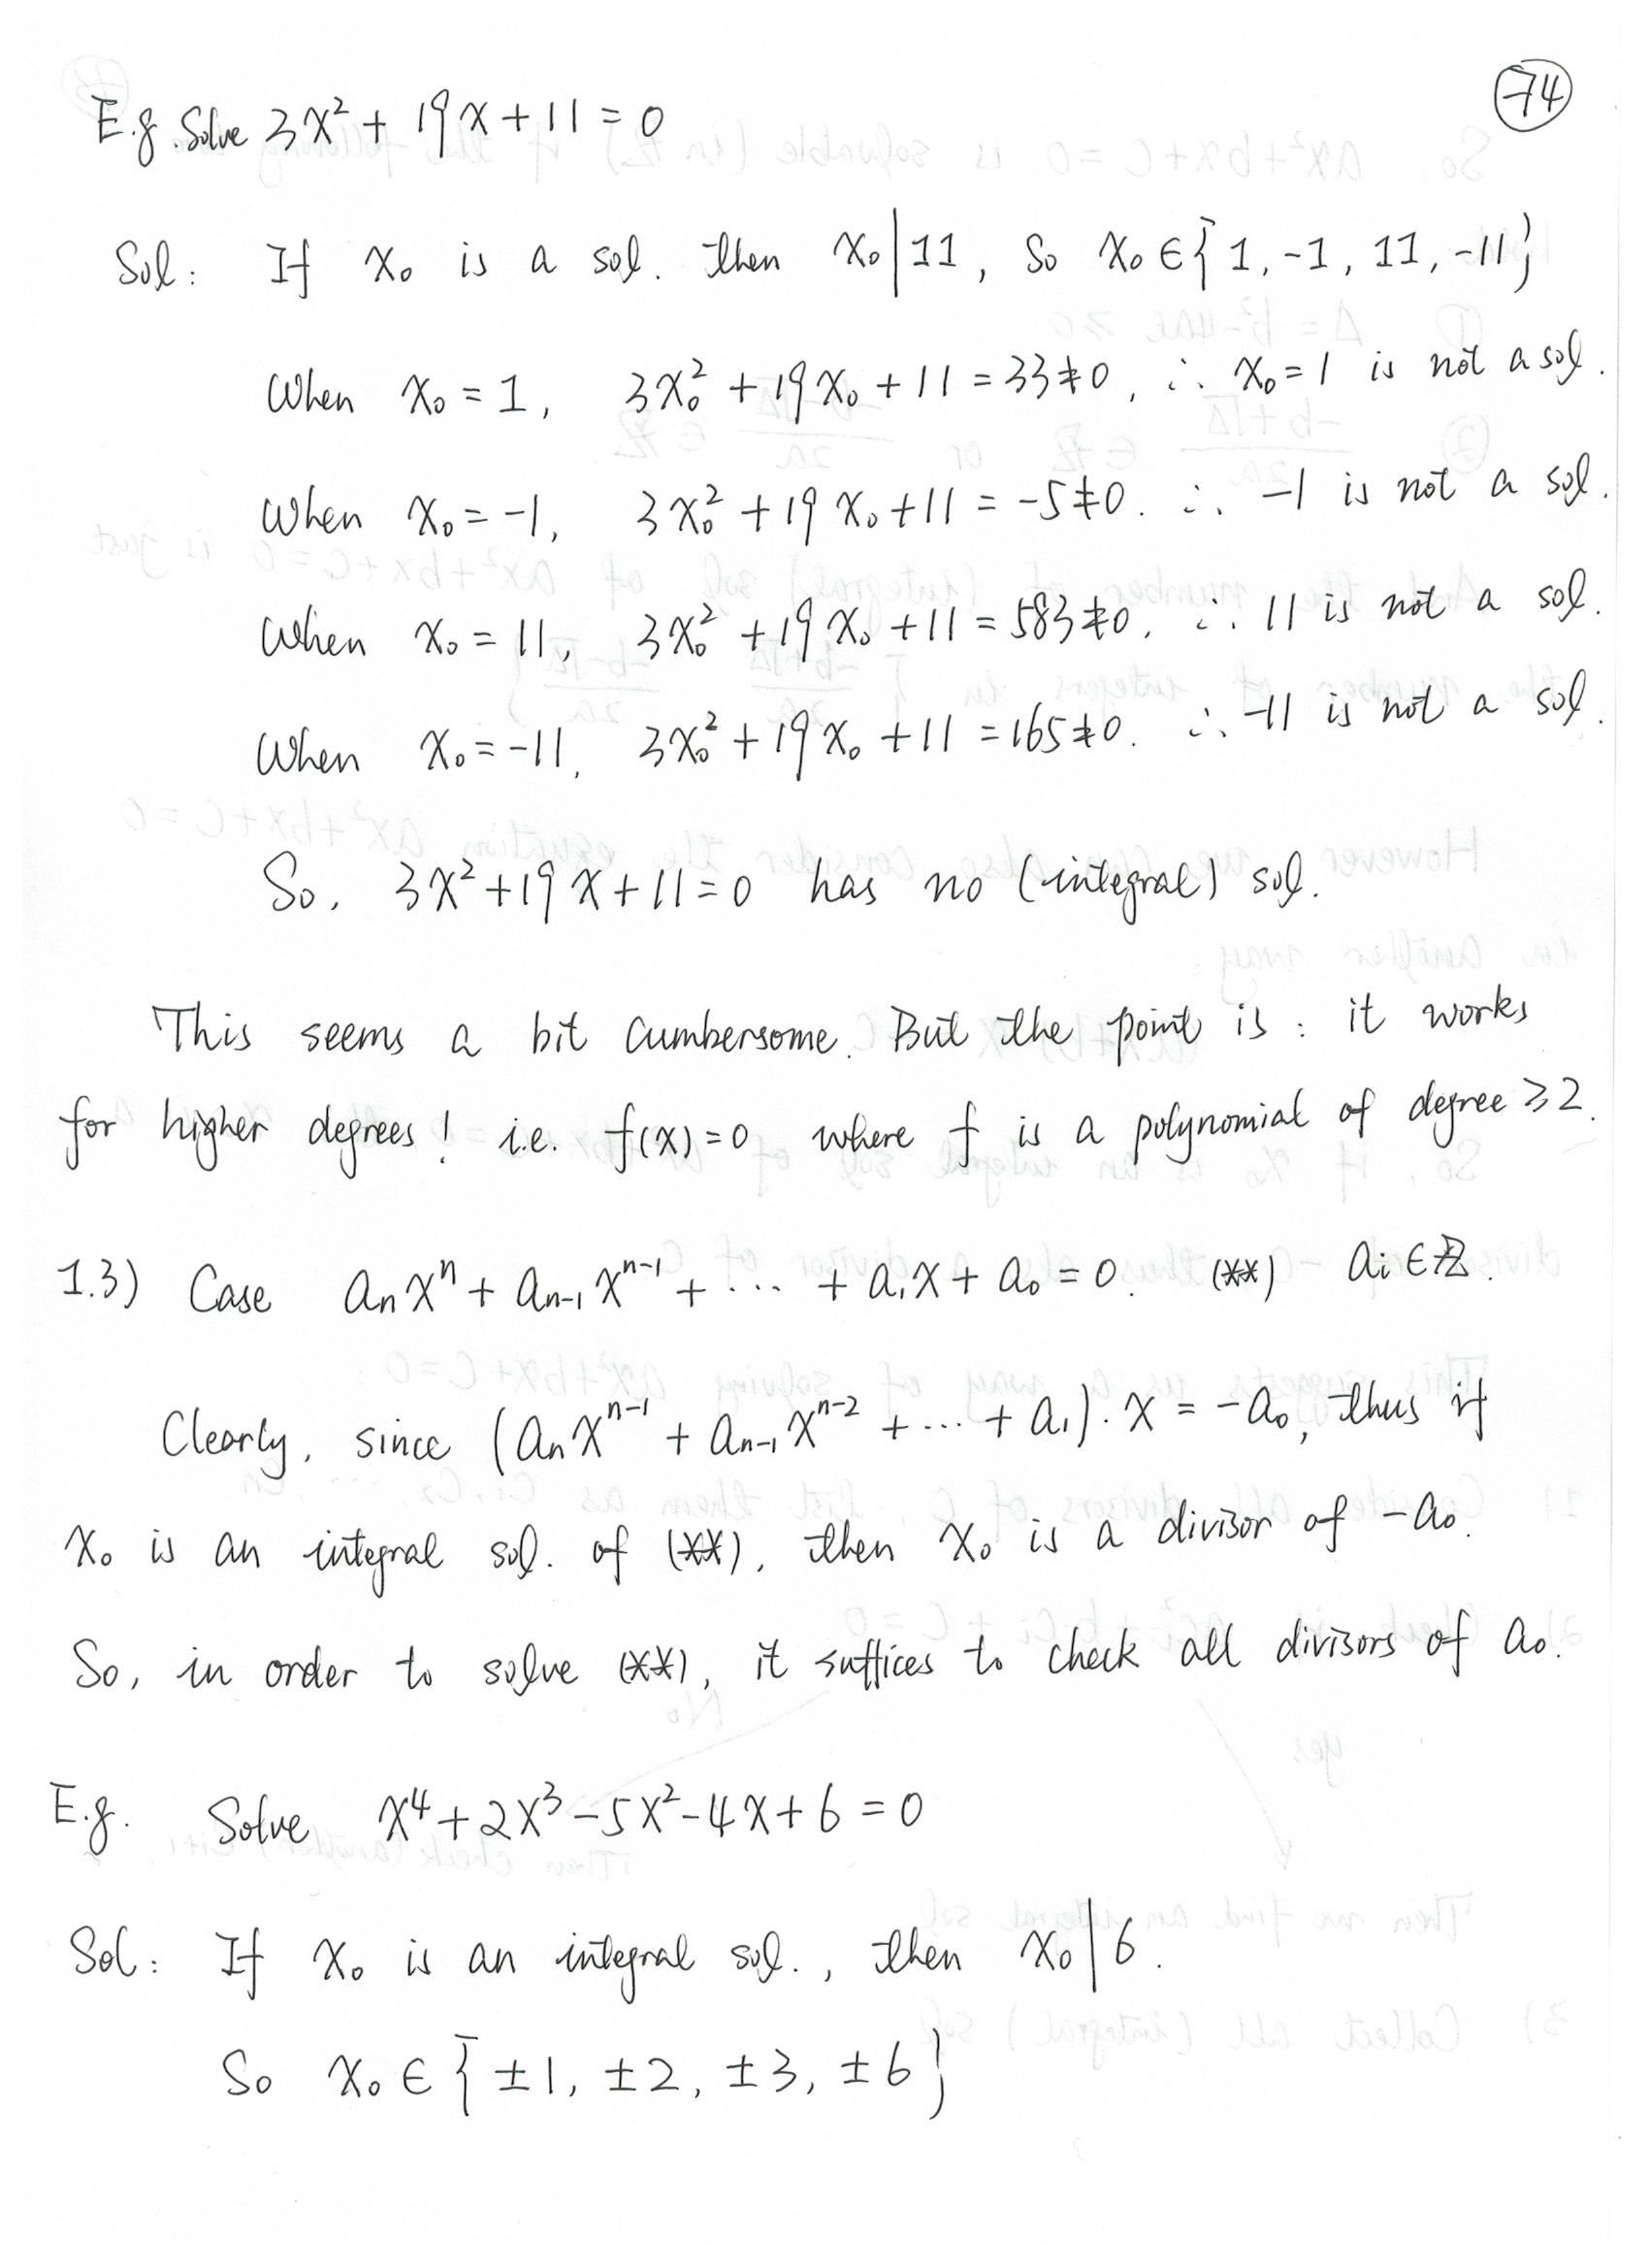 74
E.g. Solve 3x² + 19x + 11 = 0
Sol: If x₀ is a sol. then x₀|11, So x₀ ∈ {1, -1, 11, -11}
When x₀ = 1, 3x₀² + 19x₀ + 11 = 33 ≠ 0, ∴ x₀ = 1 is not a sol.
When x₀ = -1, 3x₀² + 19x₀ + 11 = -5 ≠ 0. ∴ -1 is not a sol.
When x₀ = 11, 3x₀² + 19x₀ + 11 = 583 ≠ 0, ∴ 11 is not a sol.
When x₀ = -11, 3x₀² + 19x₀ + 11 = 165 ≠ 0. ∴ -11 is not a sol.
So, 3x² + 19x + 11 = 0 has no (integral) sol.
This seems a bit cumbersome. But the point is: it works
for higher degrees! i.e. f(x) = 0 where f is a polynomial of degree ≥ 2.
1.3) Case aₙxⁿ + aₙ₋₁xⁿ⁻¹ + ... + a₁x + a₀ = 0. (**) aᵢ ∈ ℤ.
Clearly, since (aₙxⁿ⁻¹ + aₙ₋₁xⁿ⁻² + ... + a₁)·x = -a₀, thus if
x₀ is an integral sol. of (**), then x₀ is a divisor of -a₀.
So, in order to solve (**), it suffices to check all divisors of a₀.
E.g. Solve x⁴ + 2x³ - 5x² - 4x + 6 = 0
Sol: If x₀ is an integral sol., then x₀|6.
So x₀ ∈ {±1, ±2, ±3, ±6}